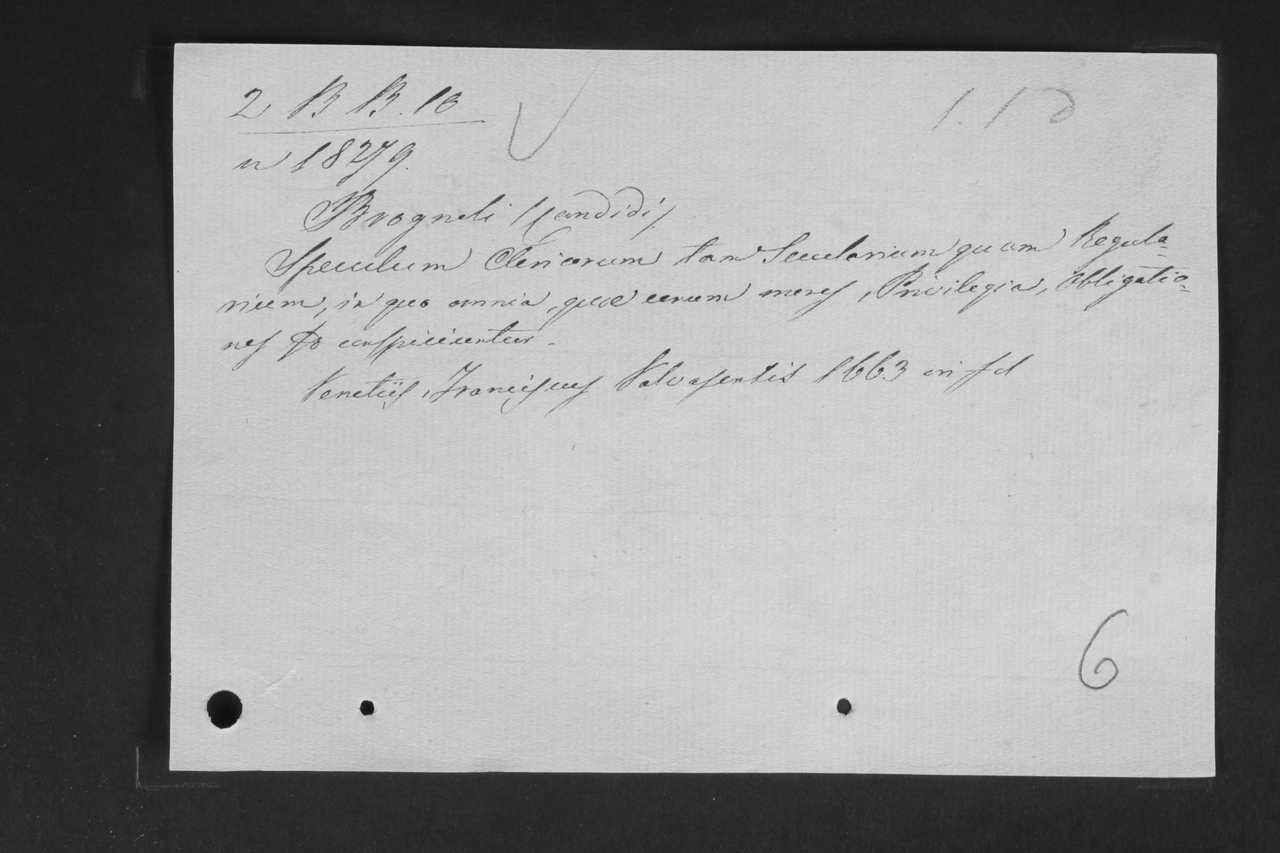 2 B B. 10
1.10
n 18279.
Brogneli /Candidi/
Speculum Clericorum tam Secularium quam Regula-
rium, in quo omnia, quae eorum mores, Privilegia, Obligatio-
nes conspiciuntur.
Venetiis, Franciscus Valvasensis 1663 in fol
6